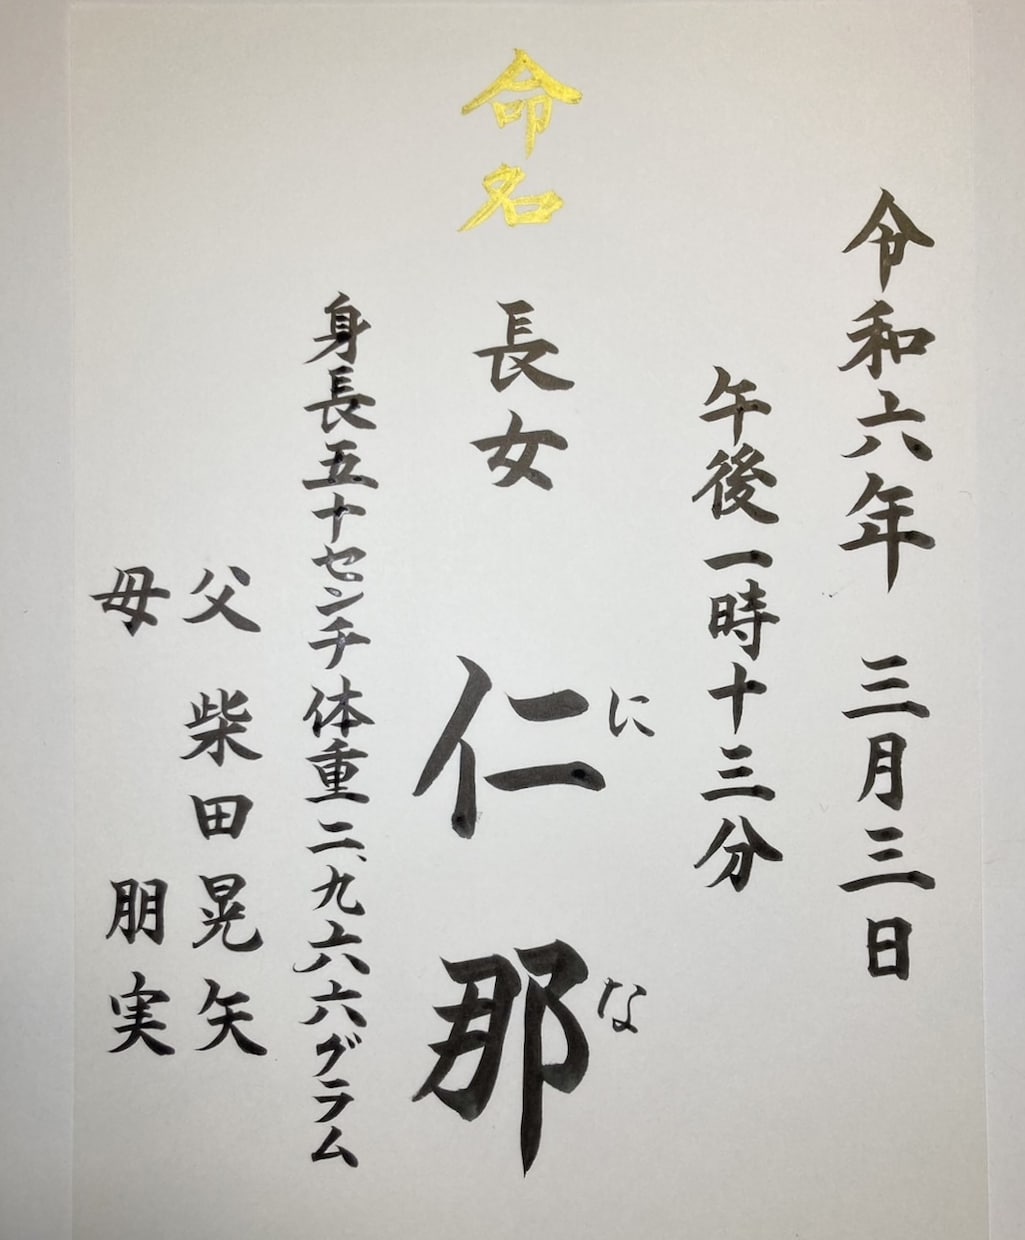 令和六年 三月三日
午後一時十三分
命名
長女 仁那
に
な
身長五十センチ体重二、九六六グラム
父 柴田晃矢
母 朋実